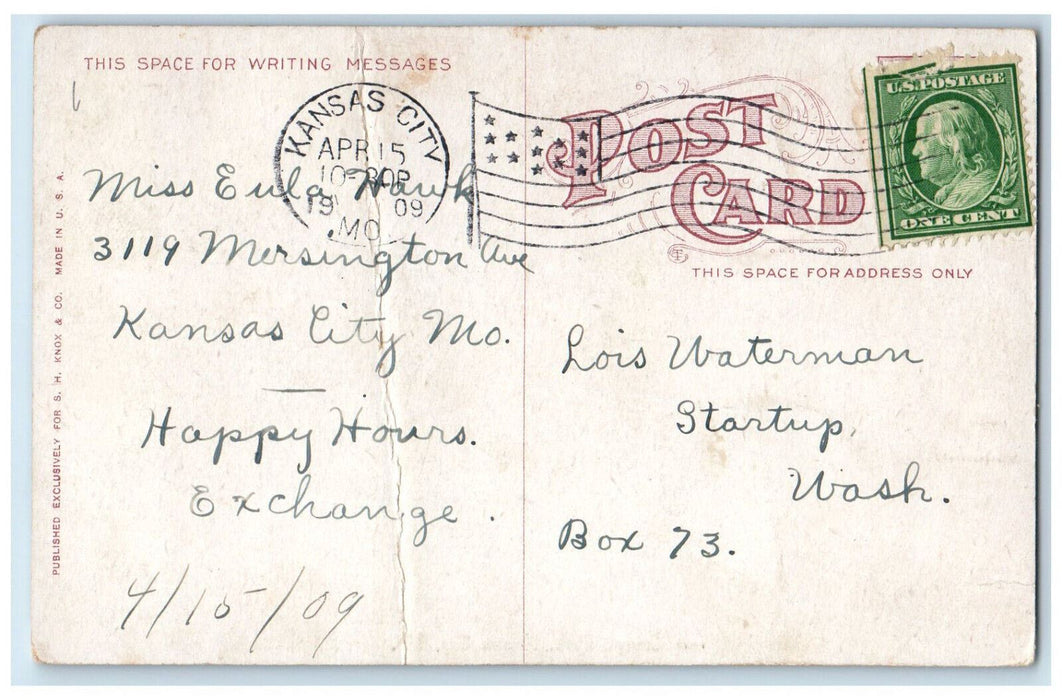 THIS SPACE FOR WRITING MESSAGES
KANSAS CITY
APR 15
1909
MO.
POST
CARD
U.S. POSTAGE
ONE CENT
THIS SPACE FOR ADDRESS ONLY
Miss Eula Hawk
3119 Mersington Ave
Kansas City Mo.
Happy Hours.
Exchange.
4/15/09
Lois Waterman
Startup,
Wash.
Box 73.
PUBLISHED EXCLUSIVELY FOR S. H. KNOX & CO. MADE IN U. S. A.